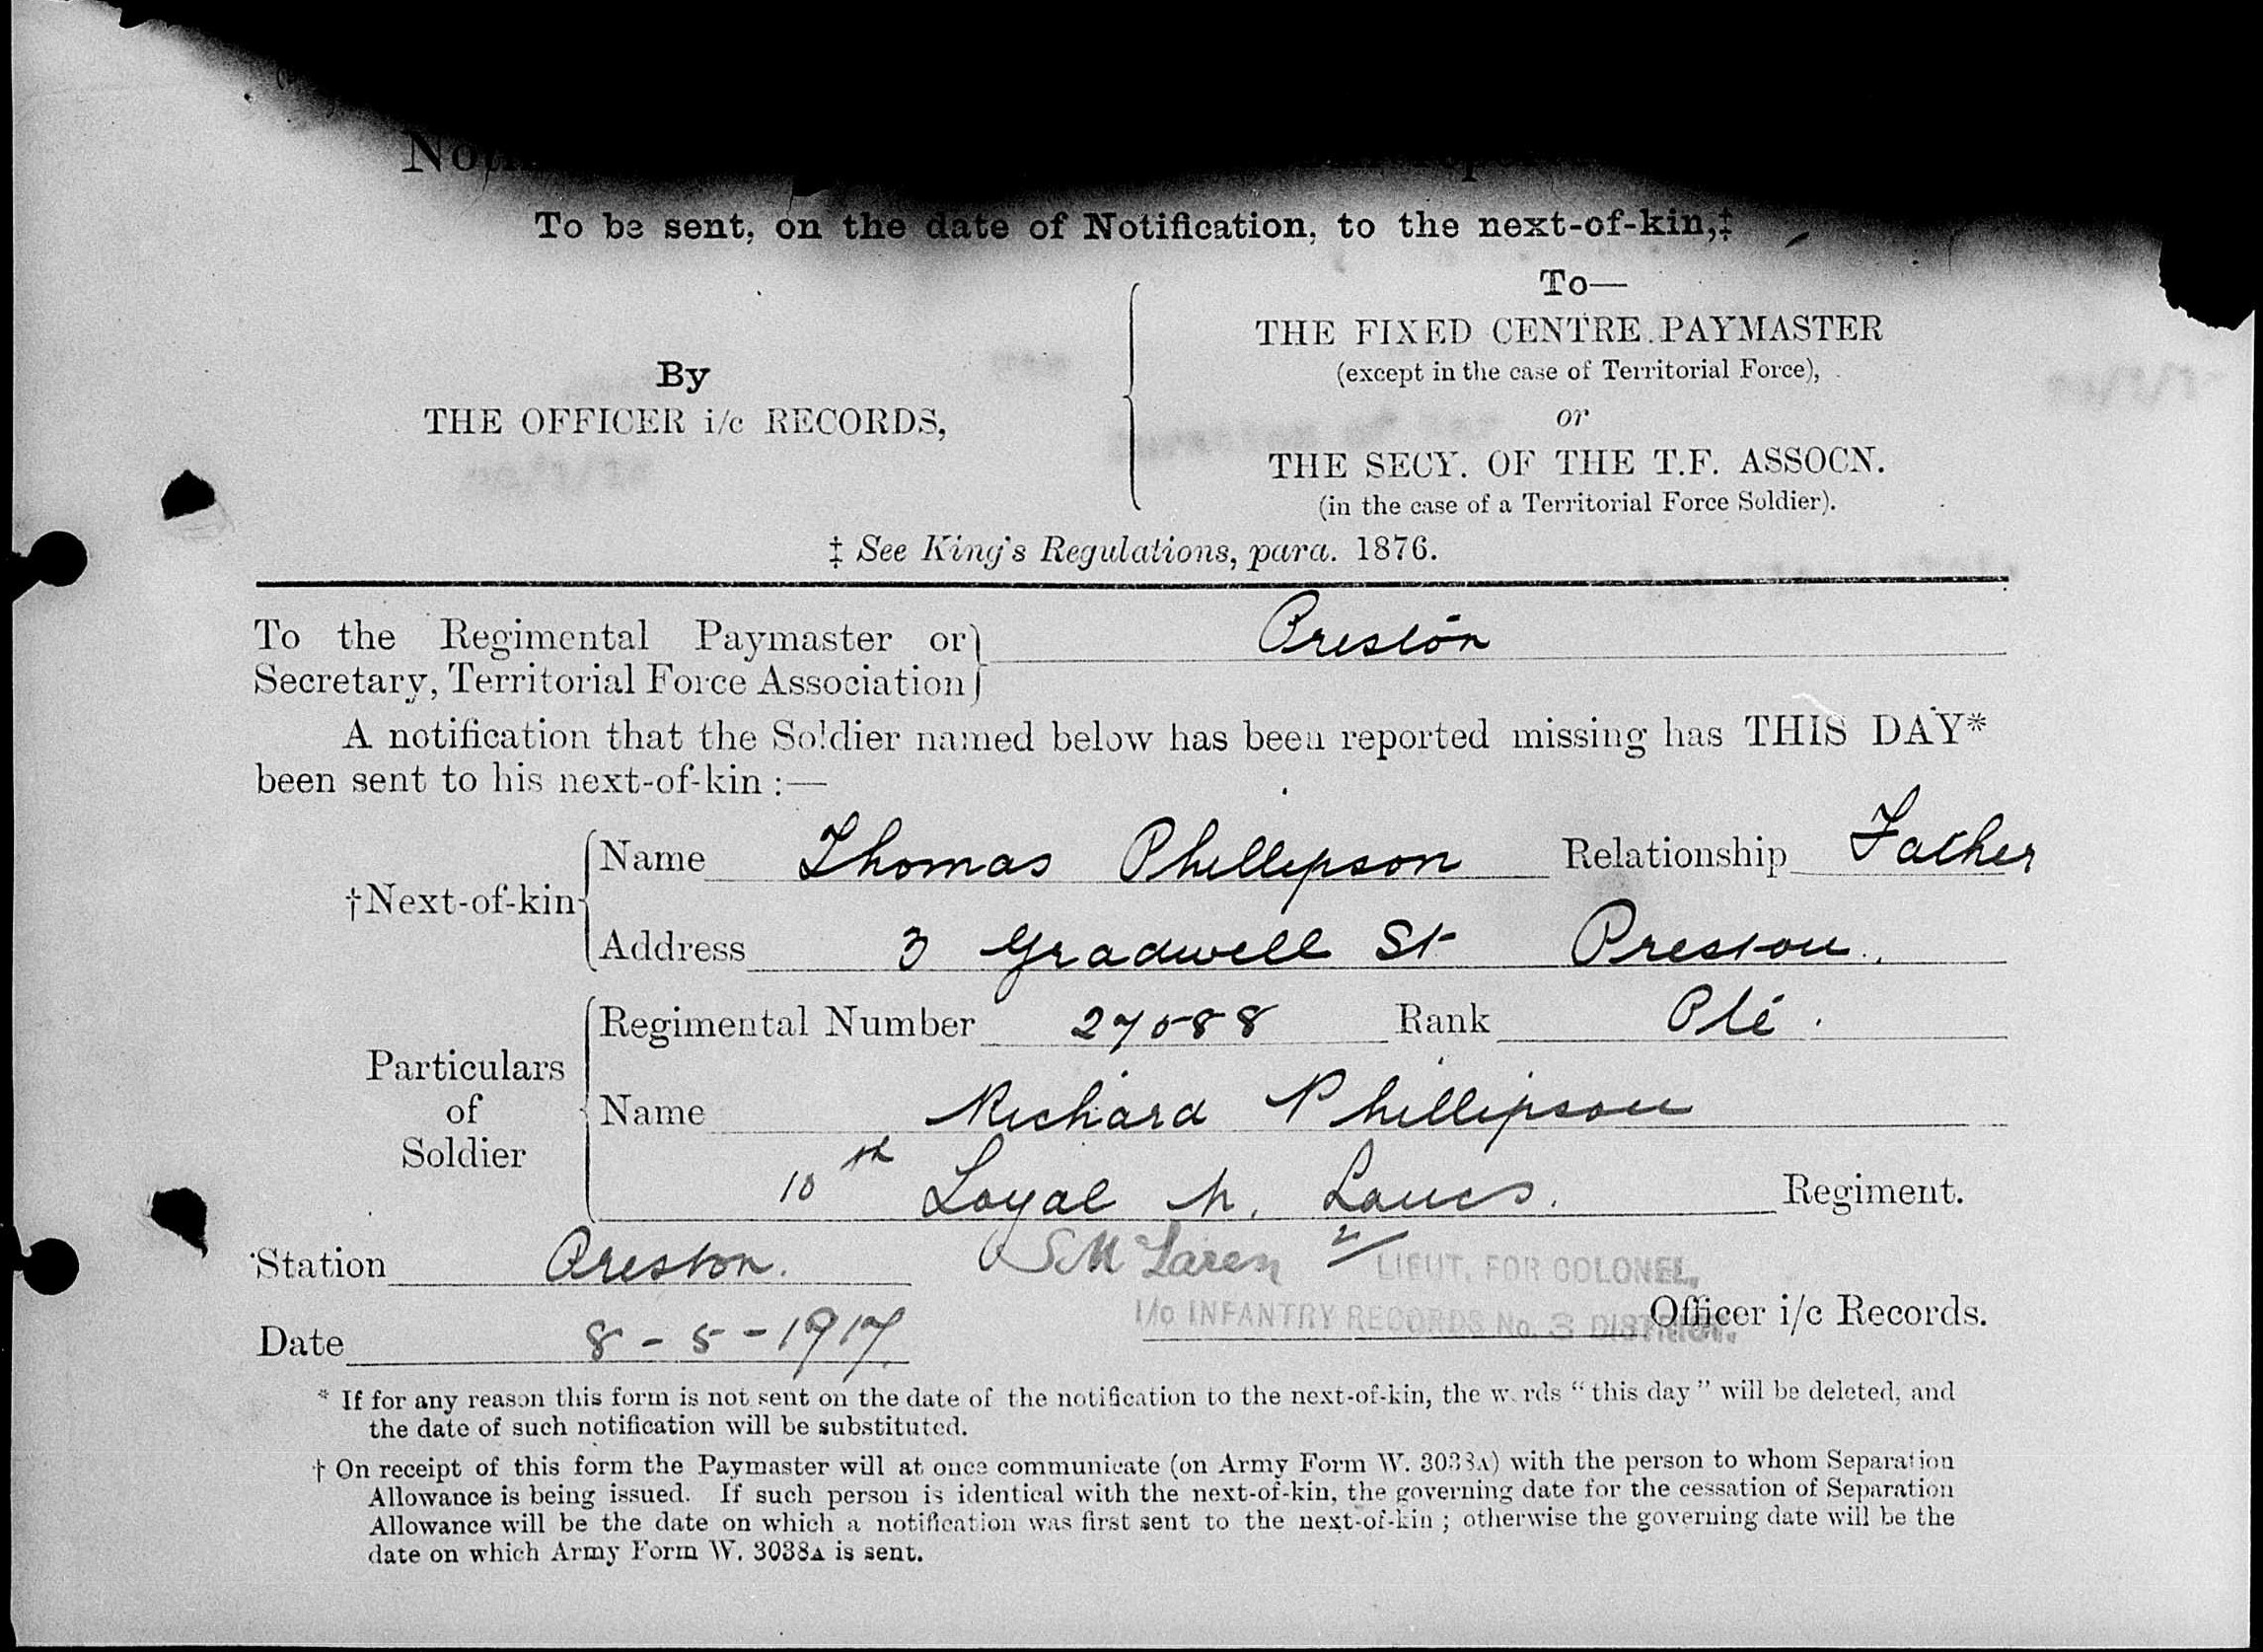 To be sent, on the date of Notification, to the next-of-kin,‡
By
THE OFFICER i/c RECORDS,
To—
THE FIXED CENTRE PAYMASTER
(except in the case of Territorial Force),
or
THE SECY. OF THE T.F. ASSOCN.
(in the case of a Territorial Force Soldier).
‡ See King's Regulations, para. 1876.
To the Regimental Paymaster or Preston
Secretary, Territorial Force Association
A notification that the Soldier named below has been reported missing has THIS DAY*
been sent to his next-of-kin :—
†Next-of-kin
Name Thomas Phillipson Relationship Father
Address 3 Gradwell St Preston.
Particulars of Soldier
Regimental Number 27588 Rank Pte.
Name Richard Phillipson
10th Loyal N. Lancs. Regiment.
Station Preston.
LIEUT. FOR COLONEL,
I/c INFANTRY RECORDS No. 3 DISTRICT.
Officer i/c Records.
Date 8-5-1917.
* If for any reason this form is not sent on the date of the notification to the next-of-kin, the w rds "this day" will be deleted, and
the date of such notification will be substituted.
† On receipt of this form the Paymaster will at once communicate (on Army Form W. 3038A) with the person to whom Separation
Allowance is being issued. If such person is identical with the next-of-kin, the governing date for the cessation of Separation
Allowance will be the date on which a notification was first sent to the next-of-kin ; otherwise the governing date will be the
date on which Army Form W. 3038A is sent.